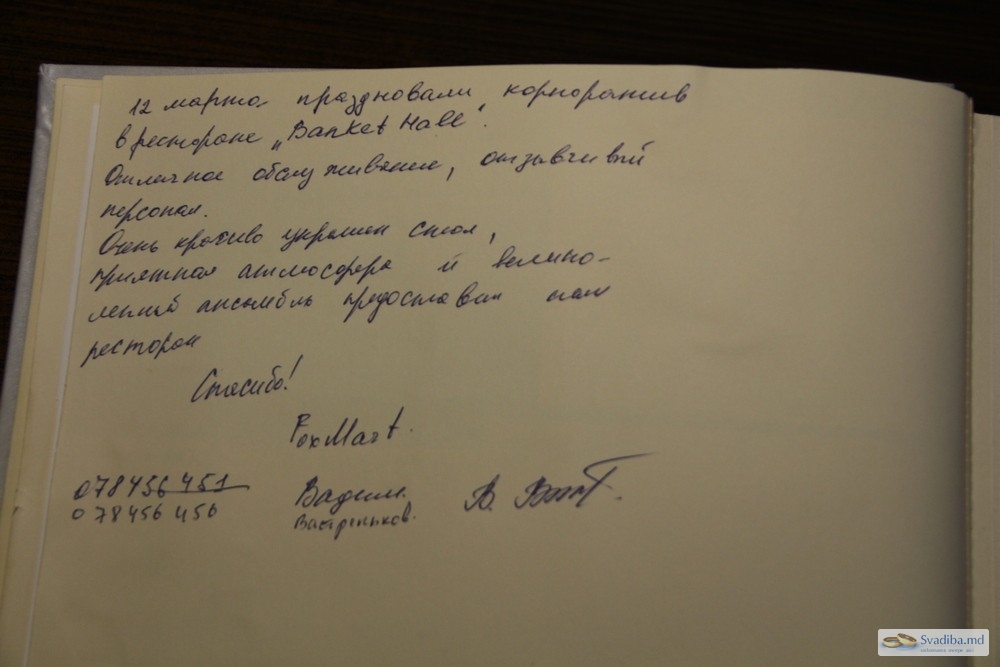 12 марта праздновали корпоратив
в ресторане „Banket Hall".
Отличное обслуживание, отзывчивый
персонал.
Очень красиво украшен стол,
приятная атмосфера и велико-
лепный ансамбль предоставил нам
ресторан
Спасибо!
FoxMart.
078456 451
078456 450
Вадим
В.
Svadiba.md